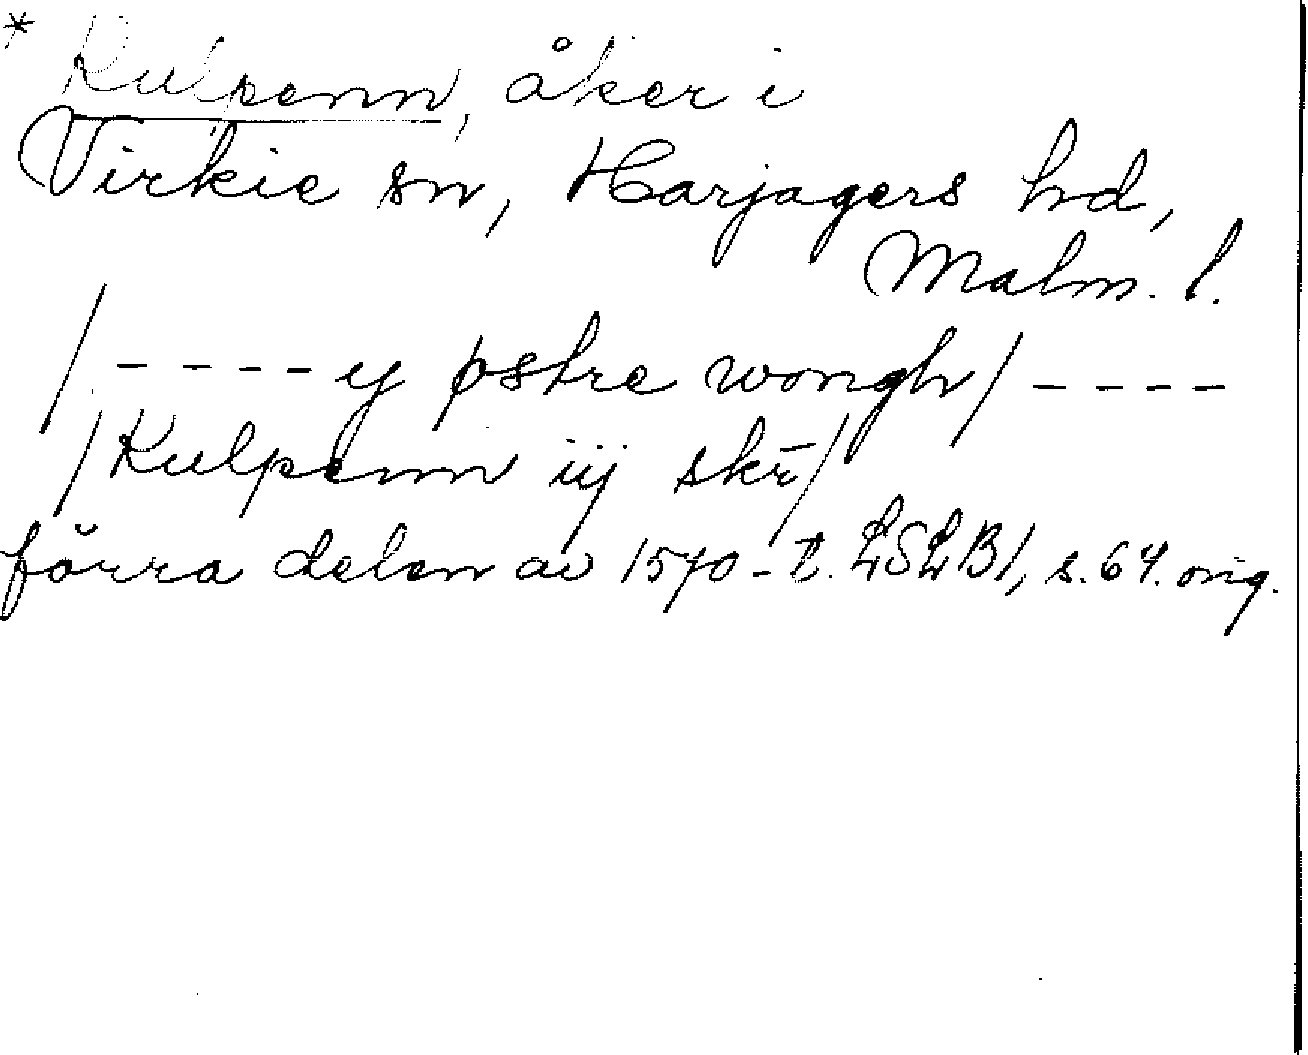 * Kulpenn, åker i
Virkie sn, Harjagers hd,
Malm. l.
/ - - - - y østre wongh / - - - -
/ Kulpenn iij skr̄ /
förra delen av 1570-t. LSLB1, s. 64. orig.